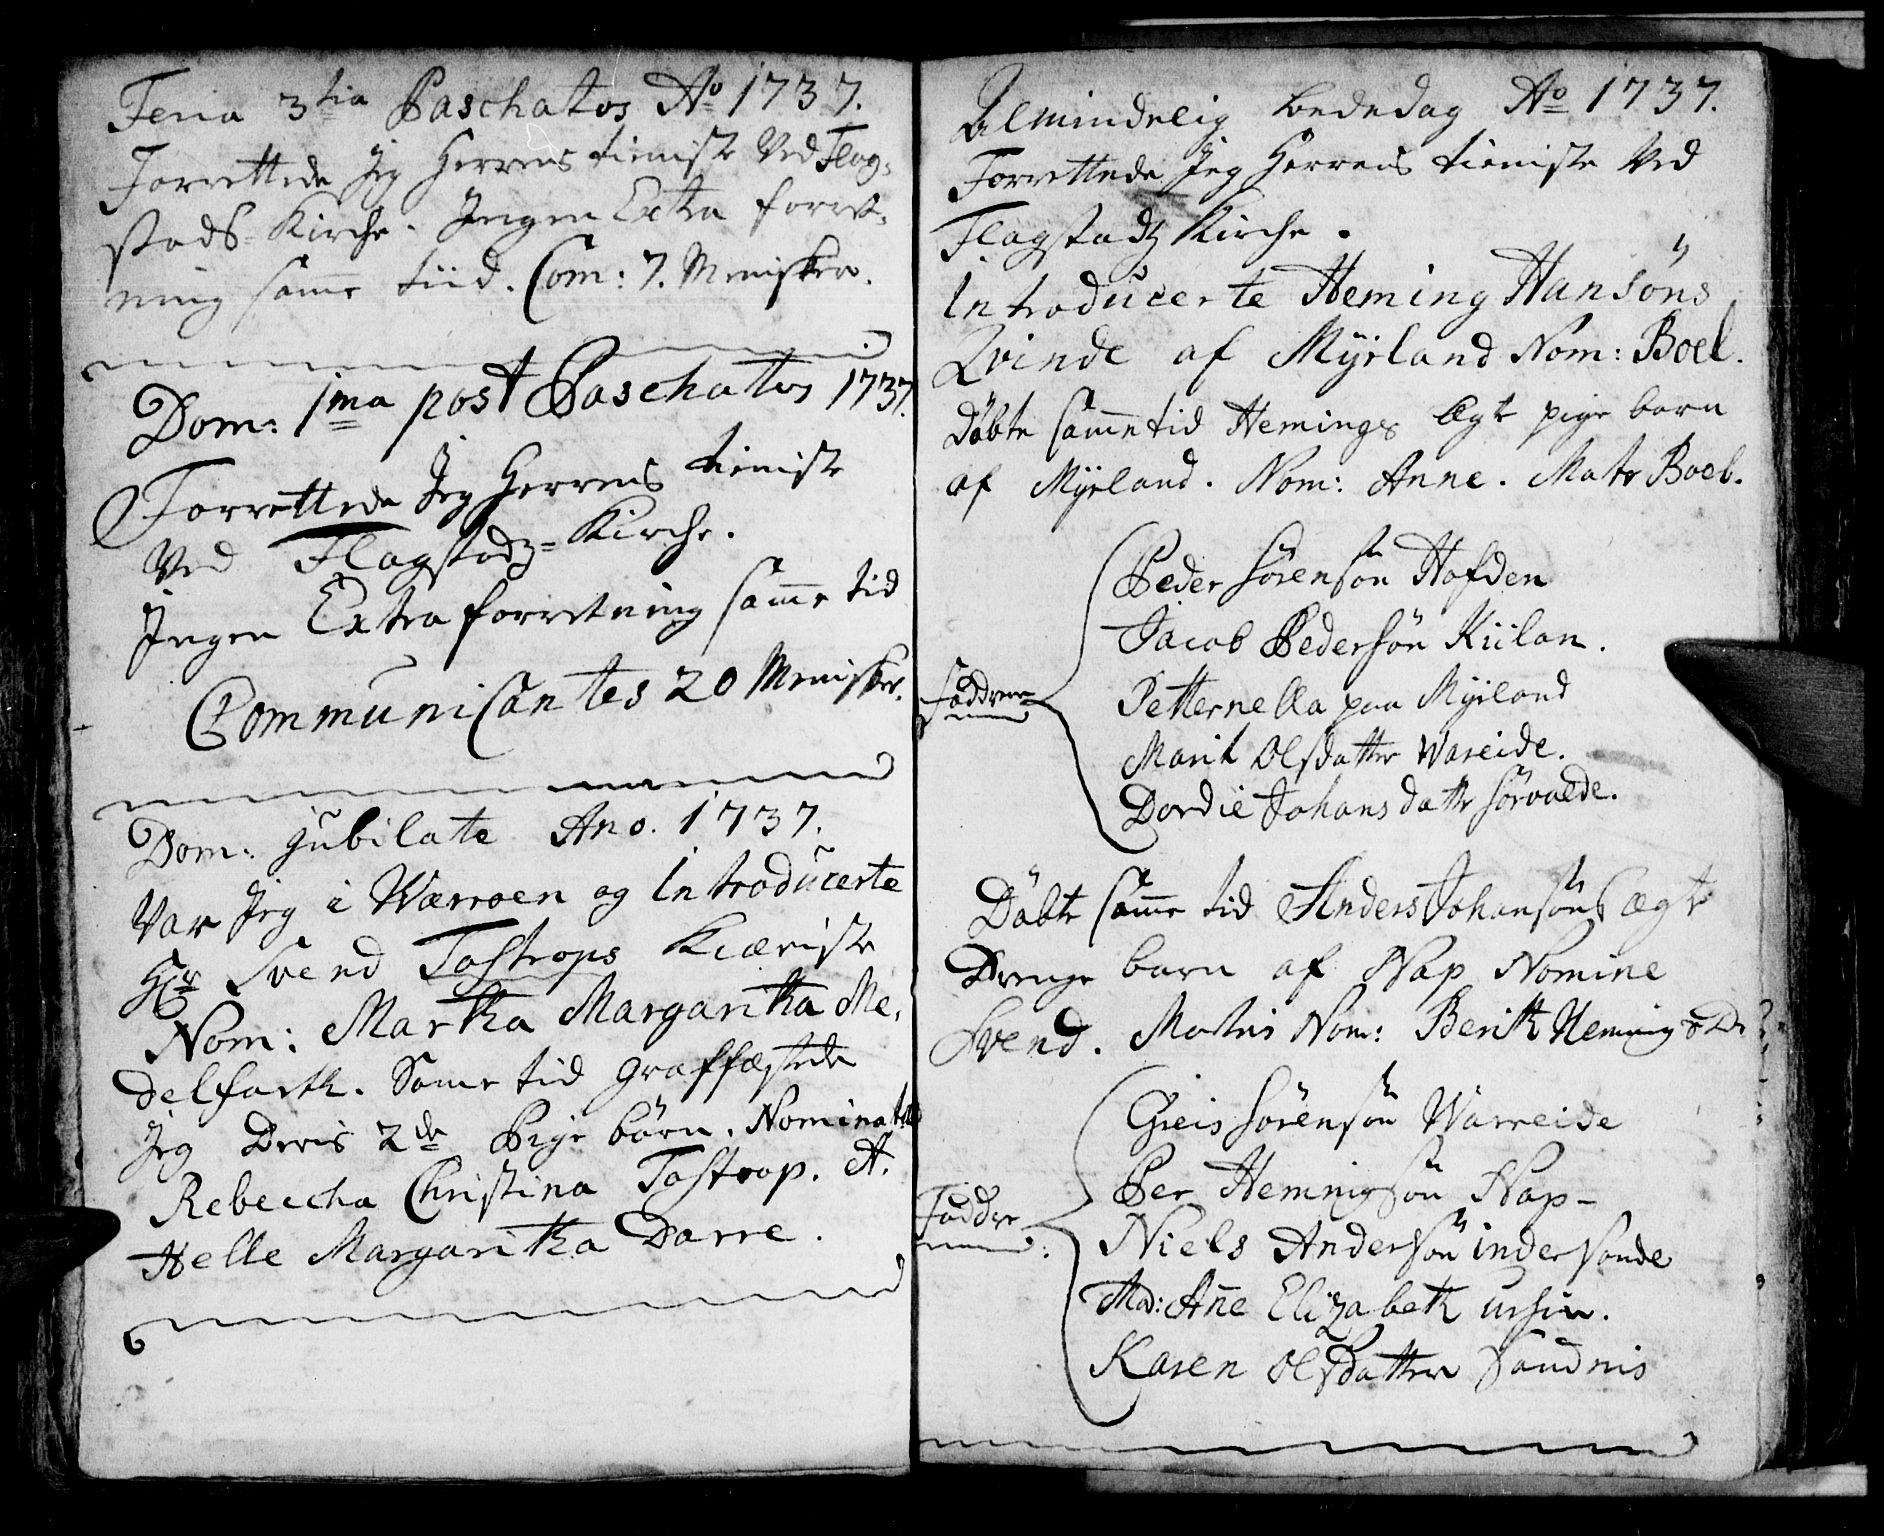 Feria 3tia Paschatos Ao 1737.
Forrettede Jeg Herrens tieniste Ved Flag-
stads Kirche. Ingen Extra forret-
ning samme tiid. Com: 7. Menisker.
Dom: 1ma post Paschatos 1737.
Forrettede Jeg Herrens tieniste
Ved Flagstadz-Kirche.
Ingen Extra forretning samme tid
Communicantes 20 Menisker.
Dom: Jubilate Ano. 1737.
Var Jeg i Wærroen og Introducerte
Hr Svend Tostrops Kiæriste
Nom: Martha Margaritha Me-
delfarth. Same tid graffæstede
Jeg Deris 2de Pige börn. Nominatæ
Rebeccha Christina Tostrop. et.
Helle Margaritha Darre.
Almindelig bededag Ao 1737.
Forrettede Jeg Herrens tieniste Ved
Flagstadz Kirche.
Introducerte Heming Hansöns
Qvinde af Myrland Nom: Boel.
Döbte samme tid Hemings Ægte pige barn
af Myrland. Nom: Anne. Mater Boel.
Faddere
Peder Sörensön Hofden
Jacob Pedersön Kiilan.
Petternella paa Myrland
Marit Olsdatter Wareide.
Dordie Johansdatter Sörvalde.
Döbte samme tid Anders Johansöns ægte
Drenge barn af Nap Nomine
Svend. Matris Nom: Berith Heming D
Faddere
Greis Sörensön Warreide
Per Hemingsön Nap-
Niels Andersön inder sonde
Md: Añe Elizabeth ursin.
Karen Olsdatter Sandnis